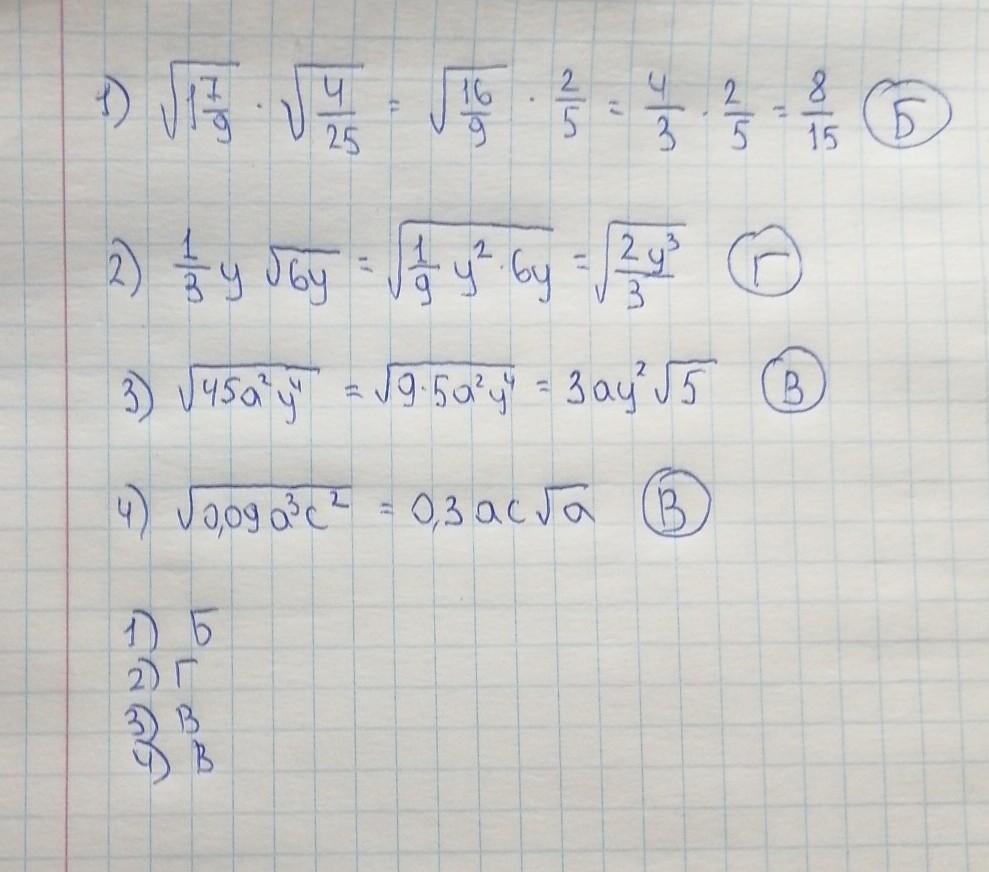 1) √(1 7/9) · √(4/25) = √(16/9) · 2/5 = 4/3 · 2/5 = 8/15 Б
2) 1/3 y √(6y) = √(1/9 y² · 6y) = √(2y³/3) Г
3) √(45a²y⁴) = √(9·5a²y⁴) = 3ay²√5 В
4) √(0,09a³c²) = 0,3ac√a В
1) Б
2) Г
3) В
4) В